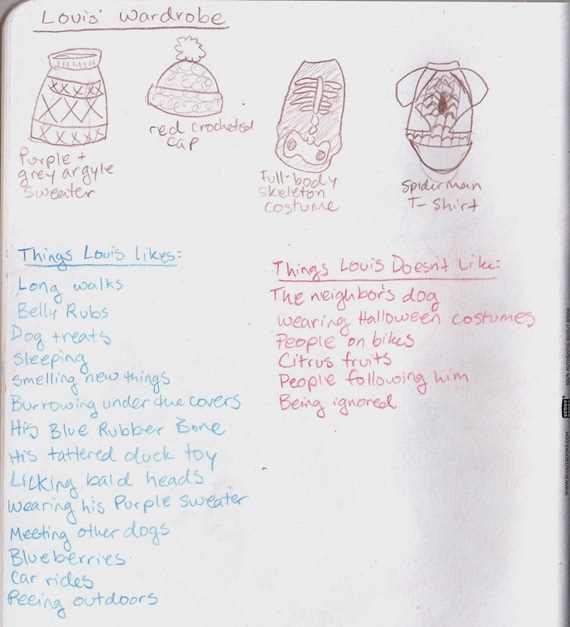 Louis' wardrobe
Purple +
grey argyle
sweater
red crocheted
cap
Full-body
skeleton
costume
Spiderman
T-Shirt
Things Louis likes:
Long walks
Belly Rubs
Dog treats
Sleeping
Smelling new things
Burrowing under the covers
His Blue Rubber Bone
His tattered duck toy
Licking bald heads
Wearing his Purple Sweater
Meeting other dogs
Blueberries
Car rides
Peeing outdoors
Things Louis Doesn't Like:
The neighbor's dog
Wearing Halloween costumes
People on bikes
Citrus fruits
People following him
Being ignored